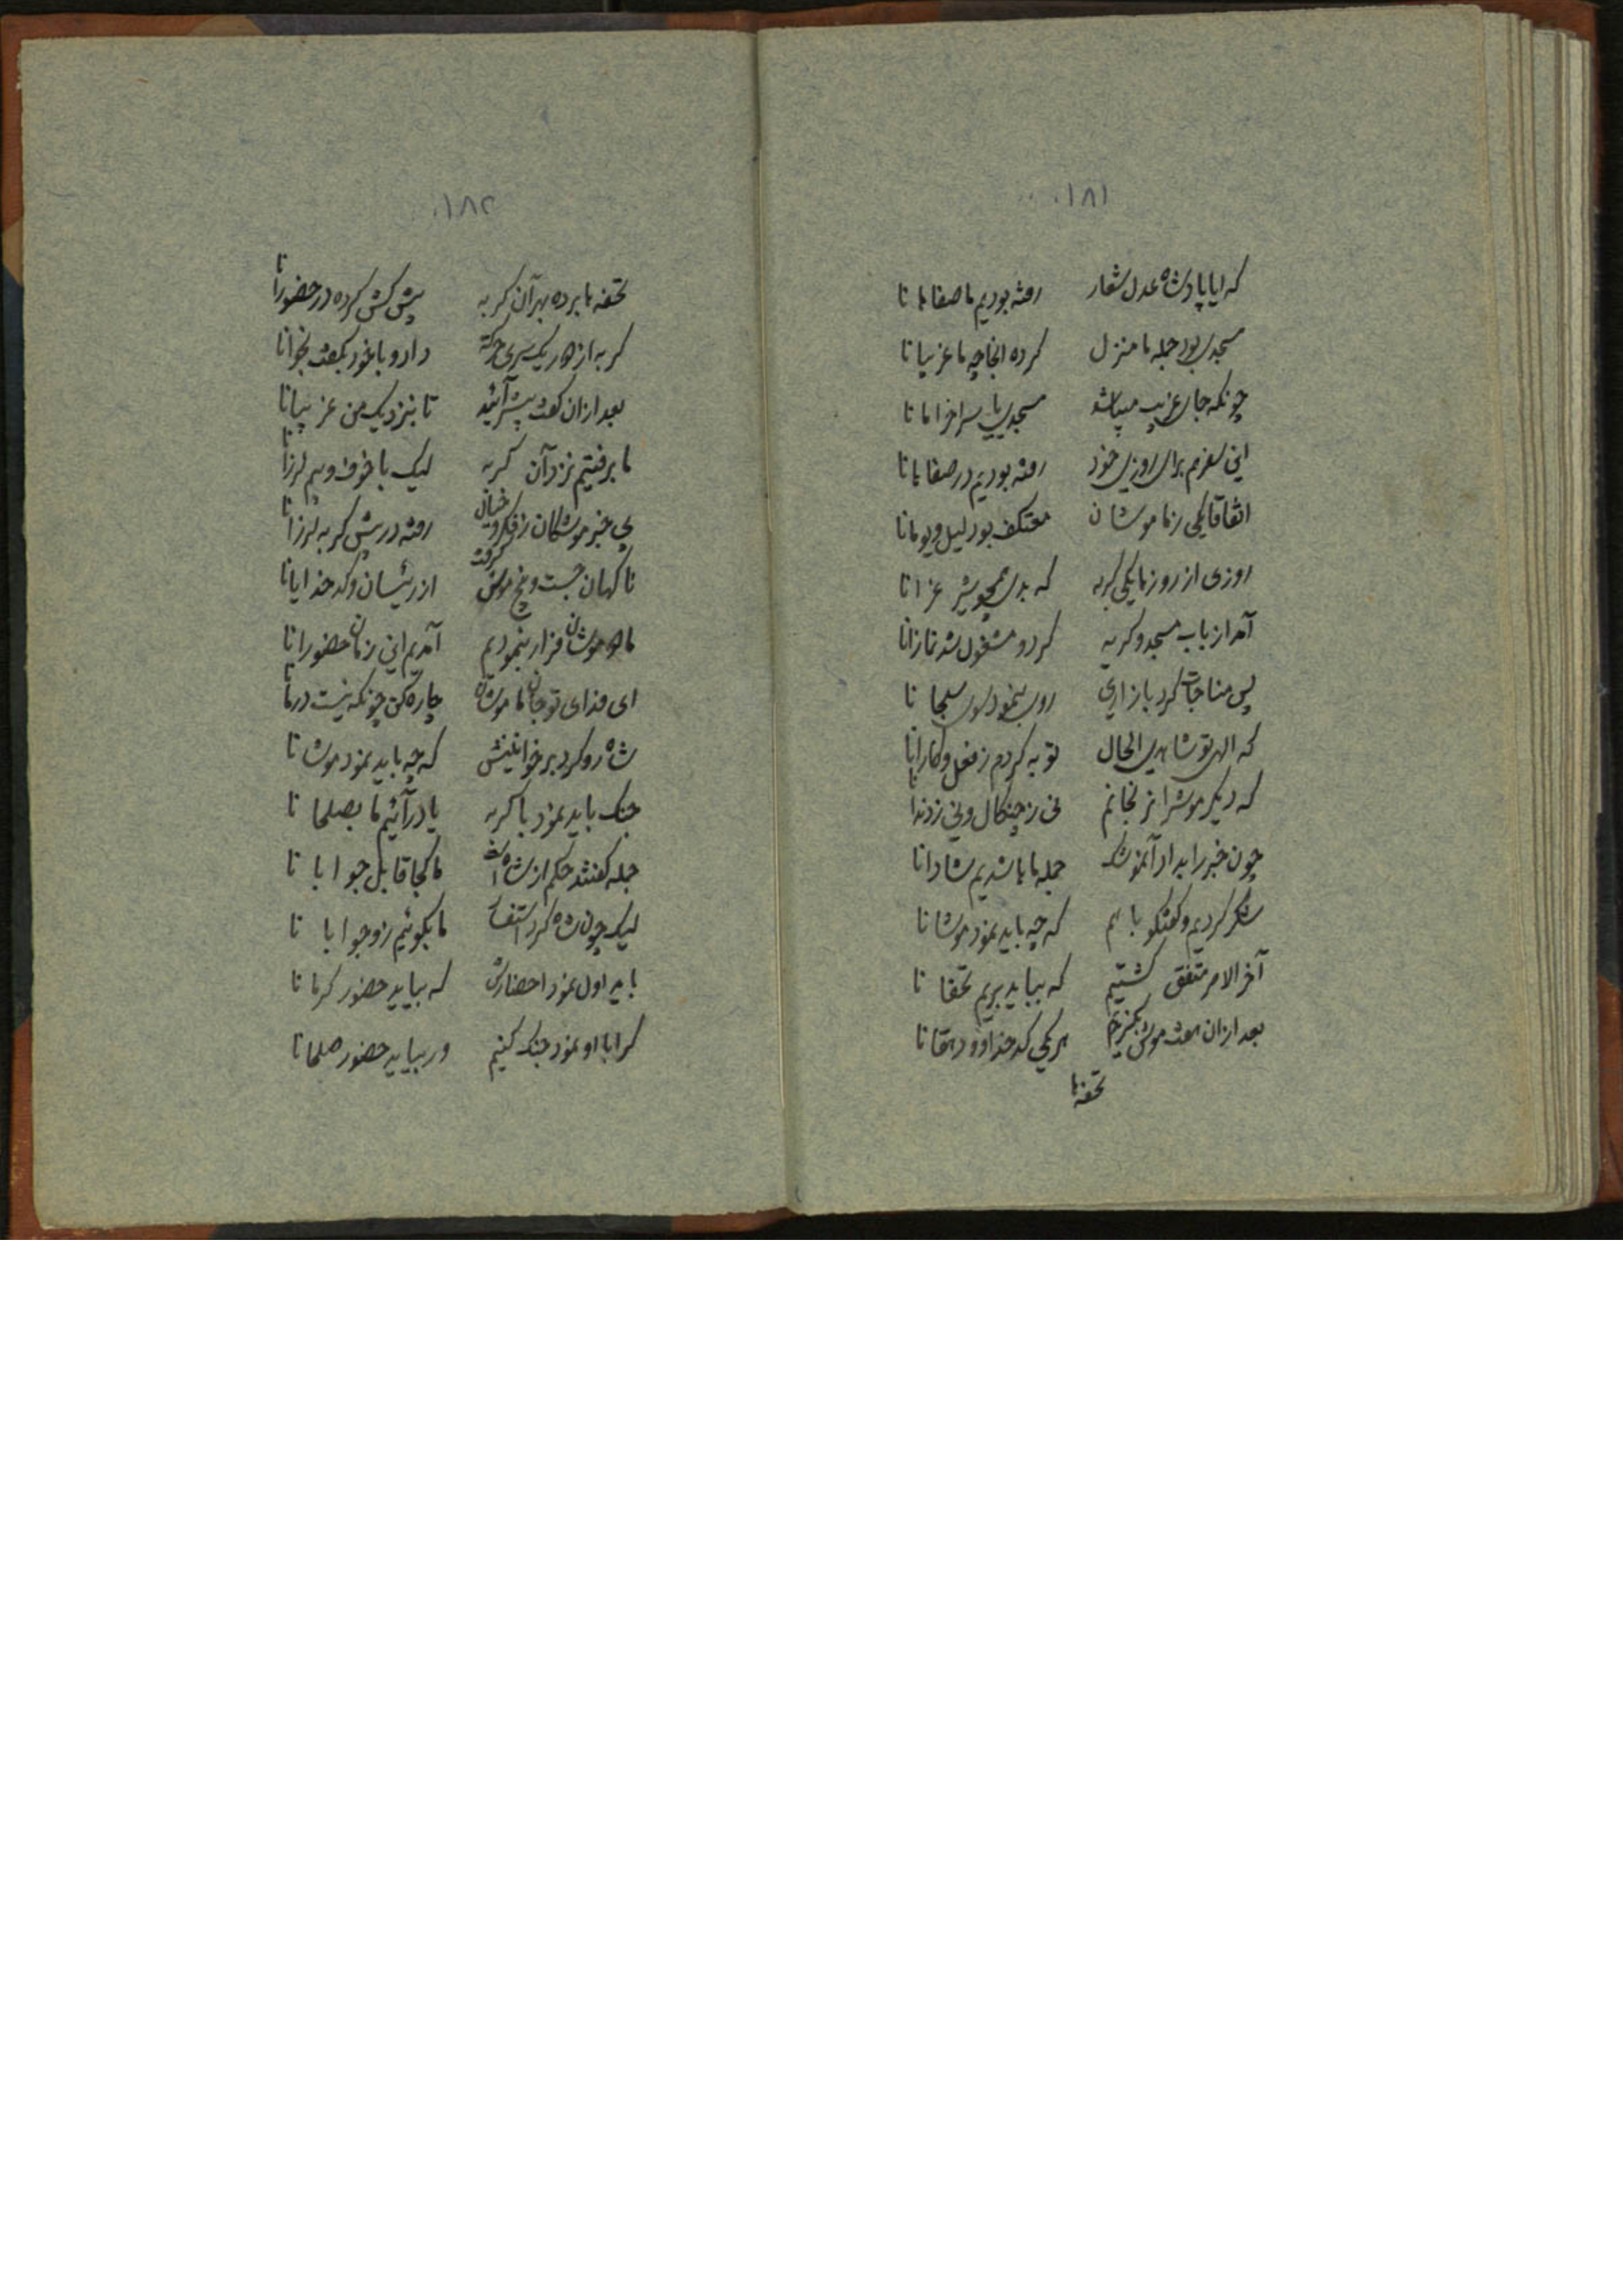 ۱۸۱
که ایا پادشاه عدل شعار رفته بودیم ما صفاهانا
مسجدی بود جمله ما منزل کرده انجا چه ما غریبانا
چونکه جای غریب میباشد مسجدی یا سراخرابانا
این سفرهم برای روزی خود رفته بودیم در صفاهانا
اتفاقا یکی زما موشان معتکف بود لیل و یومانا
روزی از روزها یکی کربه که بدی همچو شیر غرانا
آمد از باب مسجد و کریه کرد و مشغول شد نمازانا
پس مناجات کرد با زاری روی بنمود سوی سبحانا
که الهی تو شاهدی الحال توبه کردم زفعل و کارانا
که دیکر موش را نرنجانم نی زچنکال و نی زدندانا
چون خبر را بداد آنموشک جمله ماها شدیم شادانا
شکر کردیم و کفتکو باهم که چه باید نمود موشانا
آخر الامر متفق کشتیم که بباید بریم تحفانا
بعد ازان هفت موش بکزیدیم هر یکی کدخدا و دهقانا
تحفه‌ها
۱۸۲
تحفه‌ها برده بهر آن کربه پیش کش کرده در حضورانا
کربه از جا یک سری حرکة داد و با خود بکفت نجوانا
بعد ازان کفت پیشتر آئید تا بنزدیک من عزیزانا
ما برفتیم نزد آن کربه لیک با خوف و بیم لرزانا
بی خبر موشکان زفکر و خیال رفته در پیش کربه لرزانا
ناکهان جست و پنج موش کرفت از رئیسان و کدخدایانا
ما دو موشان فرار بنمودیم آمدیم این زمان حضورانا
ای فدای تو جان ما موشان چاره کن چونکه نیست درمانا
شاه رو کرد بر خوانینش که چه باید نمود موشانا
جنک باید نمود با کربه یا درآئیم ما بصلحانا
جمله کفتند حکم از شاه است ما کجا قابل جوابانا
لیک چون شاه کرد استفسار ما بکوئیم زو جوابانا
باید اول نمود احضارش که بیاید حضور کرمانا
کر ابا او نمود جنک کنیم ور بیاید حضور صلحانا